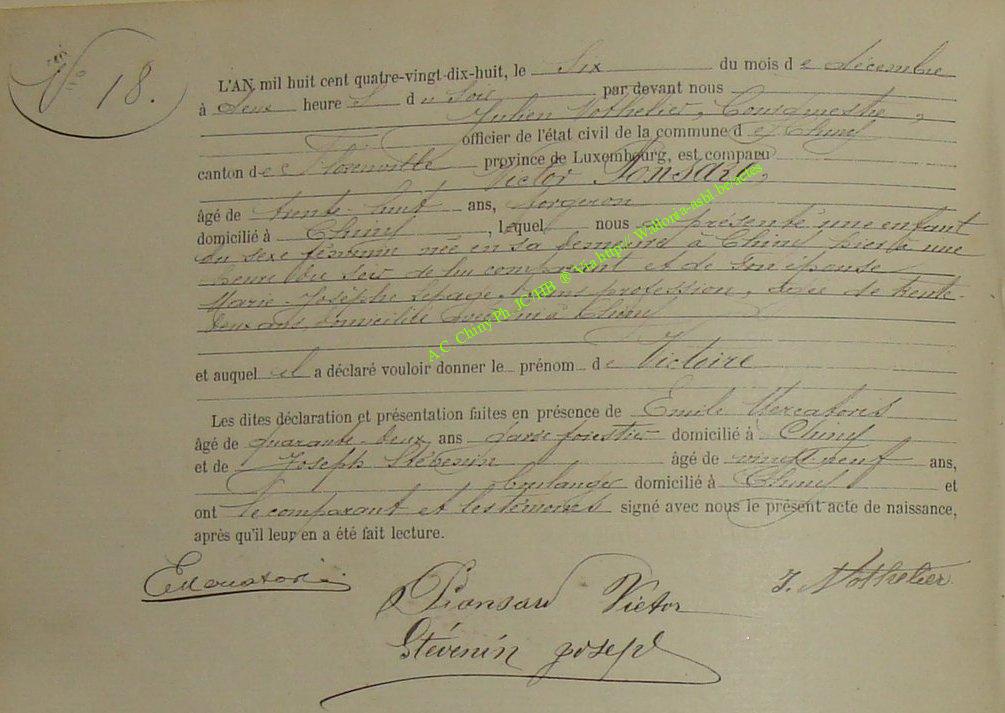 N° 18.
L'AN mil huit cent quatre-vingt-dix-huit, le Six du mois de décembre
à deux heures du soir par devant nous
Julien Nothelier, Bourgmestre,
officier de l'état civil de la commune de Chiny
canton de Florenville province de Luxembourg, est comparu
Victor Ponsard,
âgé de trente-huit ans, forgeron
domicilié à Chiny, lequel nous a présenté une enfant
du sexe féminin née en sa demeure à Chiny hier à une
heure du soir de lui comparant et de son épouse
Marie-Josèphe Lepage, sans profession, âgée de trente-
deux ans, domiciliée avec lui à Chiny
et auquel il a déclaré vouloir donner le prénom de Victoire
Les dites déclaration et présentation faites en présence de Emile Mercatoris
âgé de quarante-deux ans garde forestier domicilié à Chiny
et de Joseph Stévenin âgé de vingt-neuf ans,
boulanger domicilié à Chiny et
ont le comparant et les témoins signé avec nous le présent acte de naissance,
après qu'il leur en a été fait lecture.
J. Nothelier
Ponsard Victor
Stévenin Joseph
A.C. Chiny Ph. JC/HB ® Via http:// Wallonia-asbl.be/actes